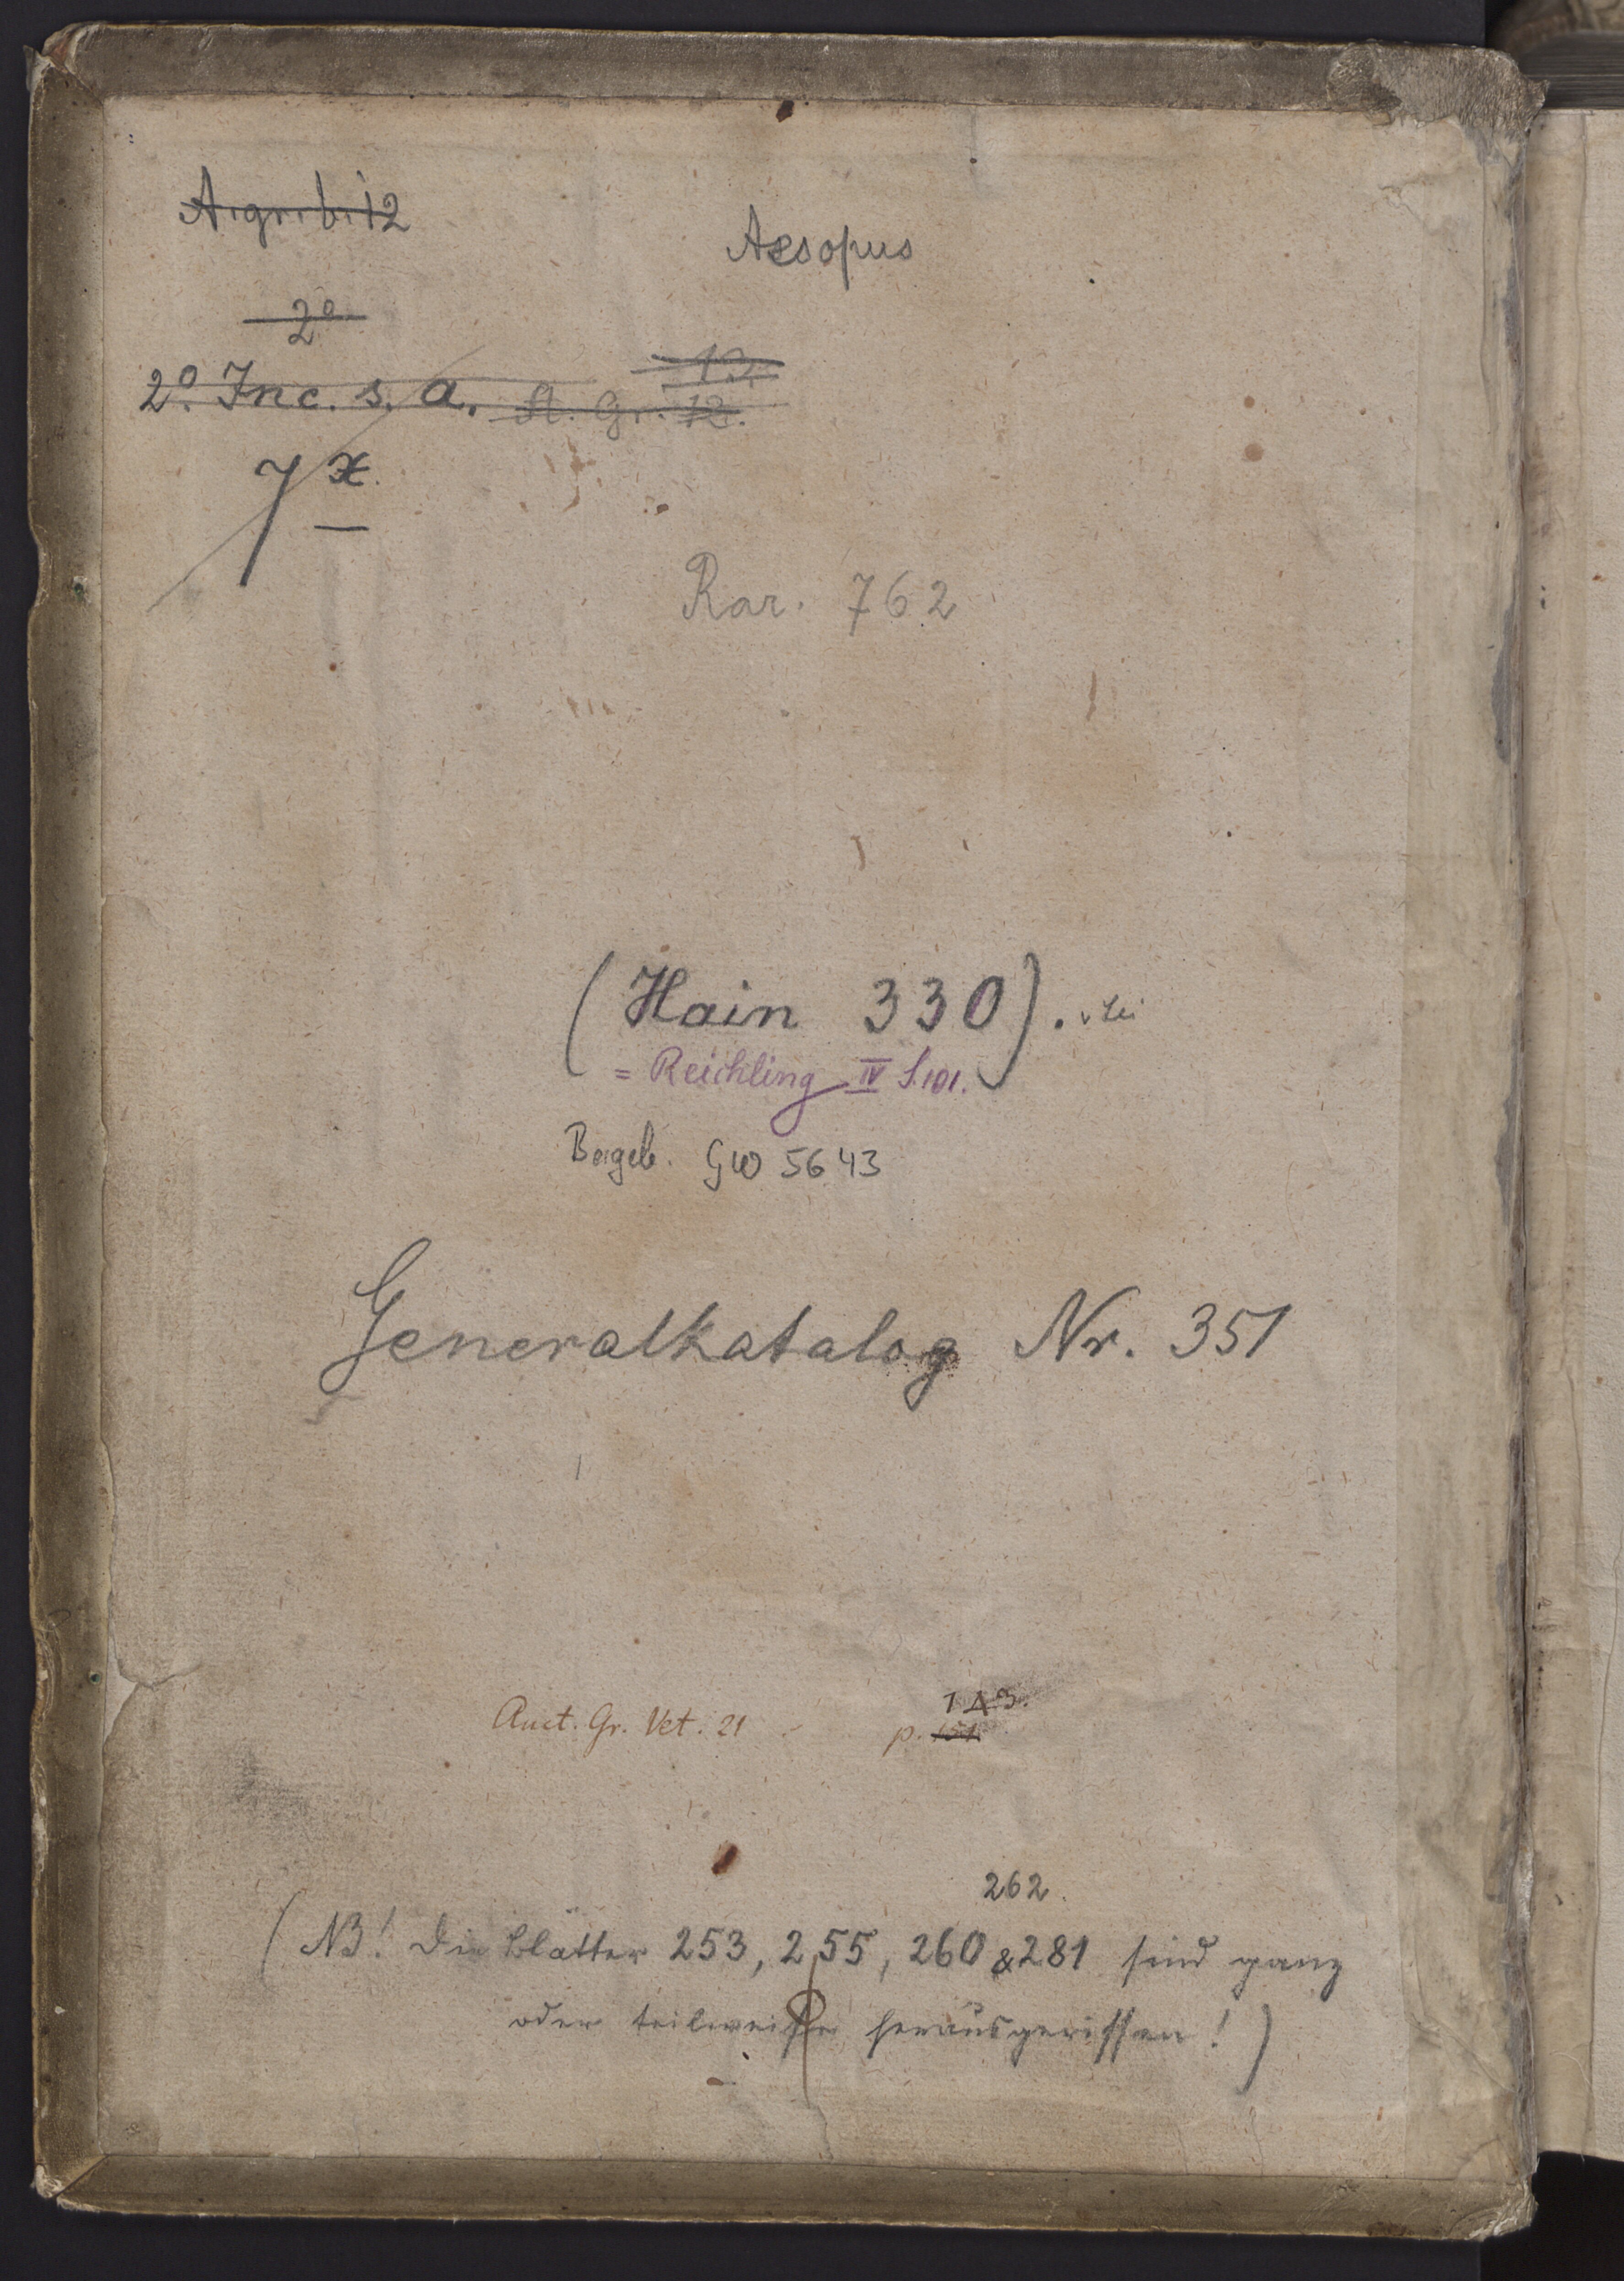 A. gr. b. 12
Aesopus
2°
2° Inc. s. a. A. Gr. 12.
12.
7 x.
Rar. 762
(Hain 330).
= Reichling IV S. 101.
Beigeb. GW 5643
Generalkatalog Nr. 351
143.
Auct. Gr. Vet. 21 p.
262.
(NB! Die Blätter 253, 255, 260 & 281 sind ganz
oder teilweise herausgerissen!)